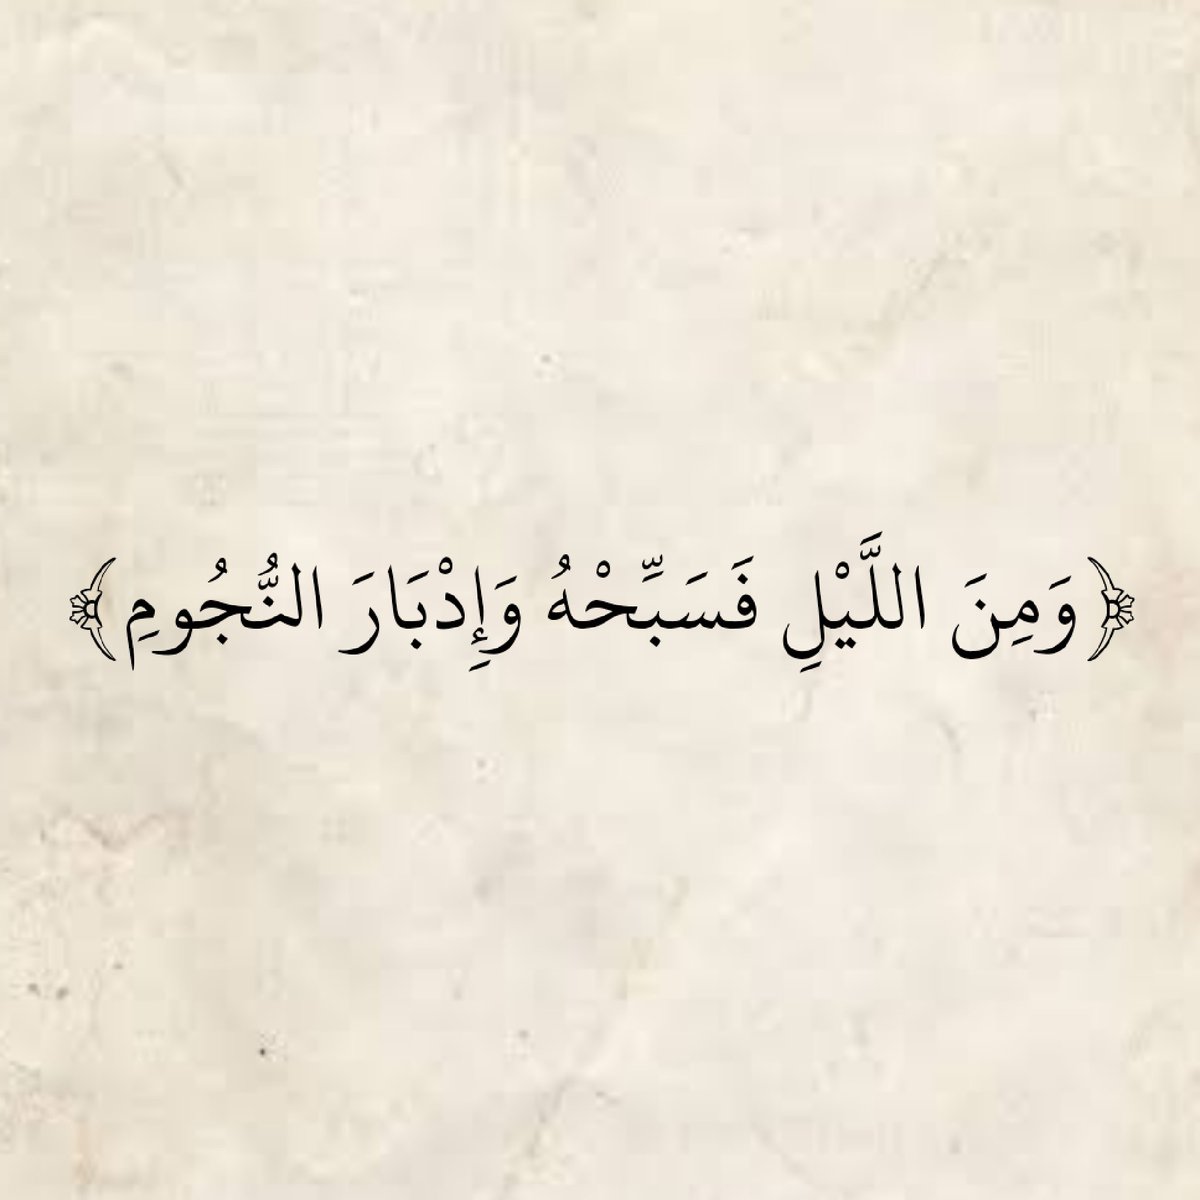 ﴿وَمِنَ اللَّيْلِ فَسَبِّحْهُ وَإِدْبَارَ النُّجُومِ﴾